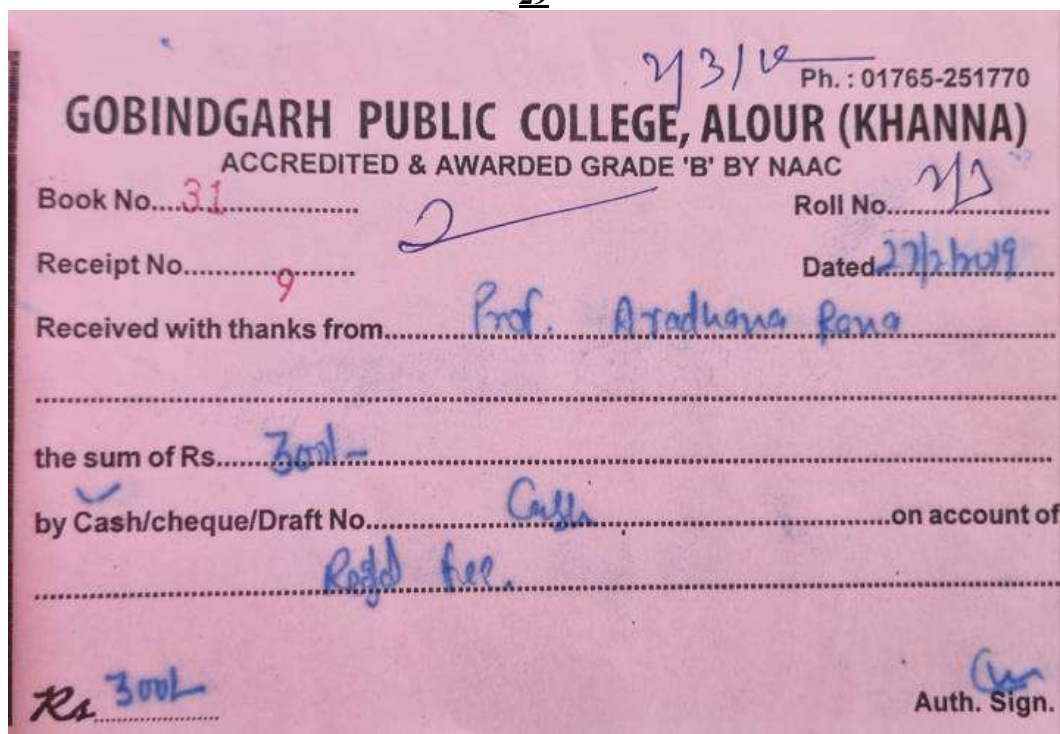 29
2/3/
Ph. : 01765-251770
GOBINDGARH PUBLIC COLLEGE, ALOUR (KHANNA)
ACCREDITED & AWARDED GRADE 'B' BY NAAC
Book No....31.................... Roll No....................
Receipt No....9.................... Dated 27/2/2019
Received with thanks from.......... Prof. Aradhana Rana
the sum of Rs....... 300/-
by Cash/cheque/Draft No............ Cash ....................on account of
Regd fee.
Rs 300/- Auth. Sign.